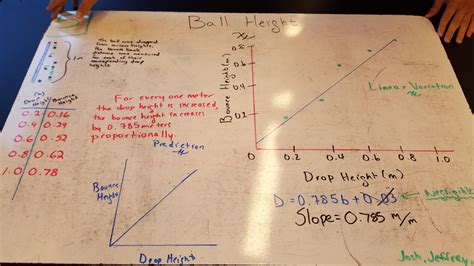 Ball Height
The ball was dropped
from various heights.
The bounce back
distance was measured
for each of their
corresponding drop
heights.
1m
Drop Height
Bounce Height
0.2 0.16
0.4 0.29
0.6 0.52
0.8 0.62
1.0 0.78
For every one meter
the drop height is increased,
the bounce height increases
by 0.785 meters
proportionally.
Prediction
Bounce
Height
Drop Height
Bounce Height (m)
0.8
0.6
0.4
0.2
0
0.2 0.4 0.6 0.8 1.0
Drop Height (m)
Linear Variation
D = 0.785b + 0.03
Negligible
Slope = 0.785 m/m
Josh, Jeffrey